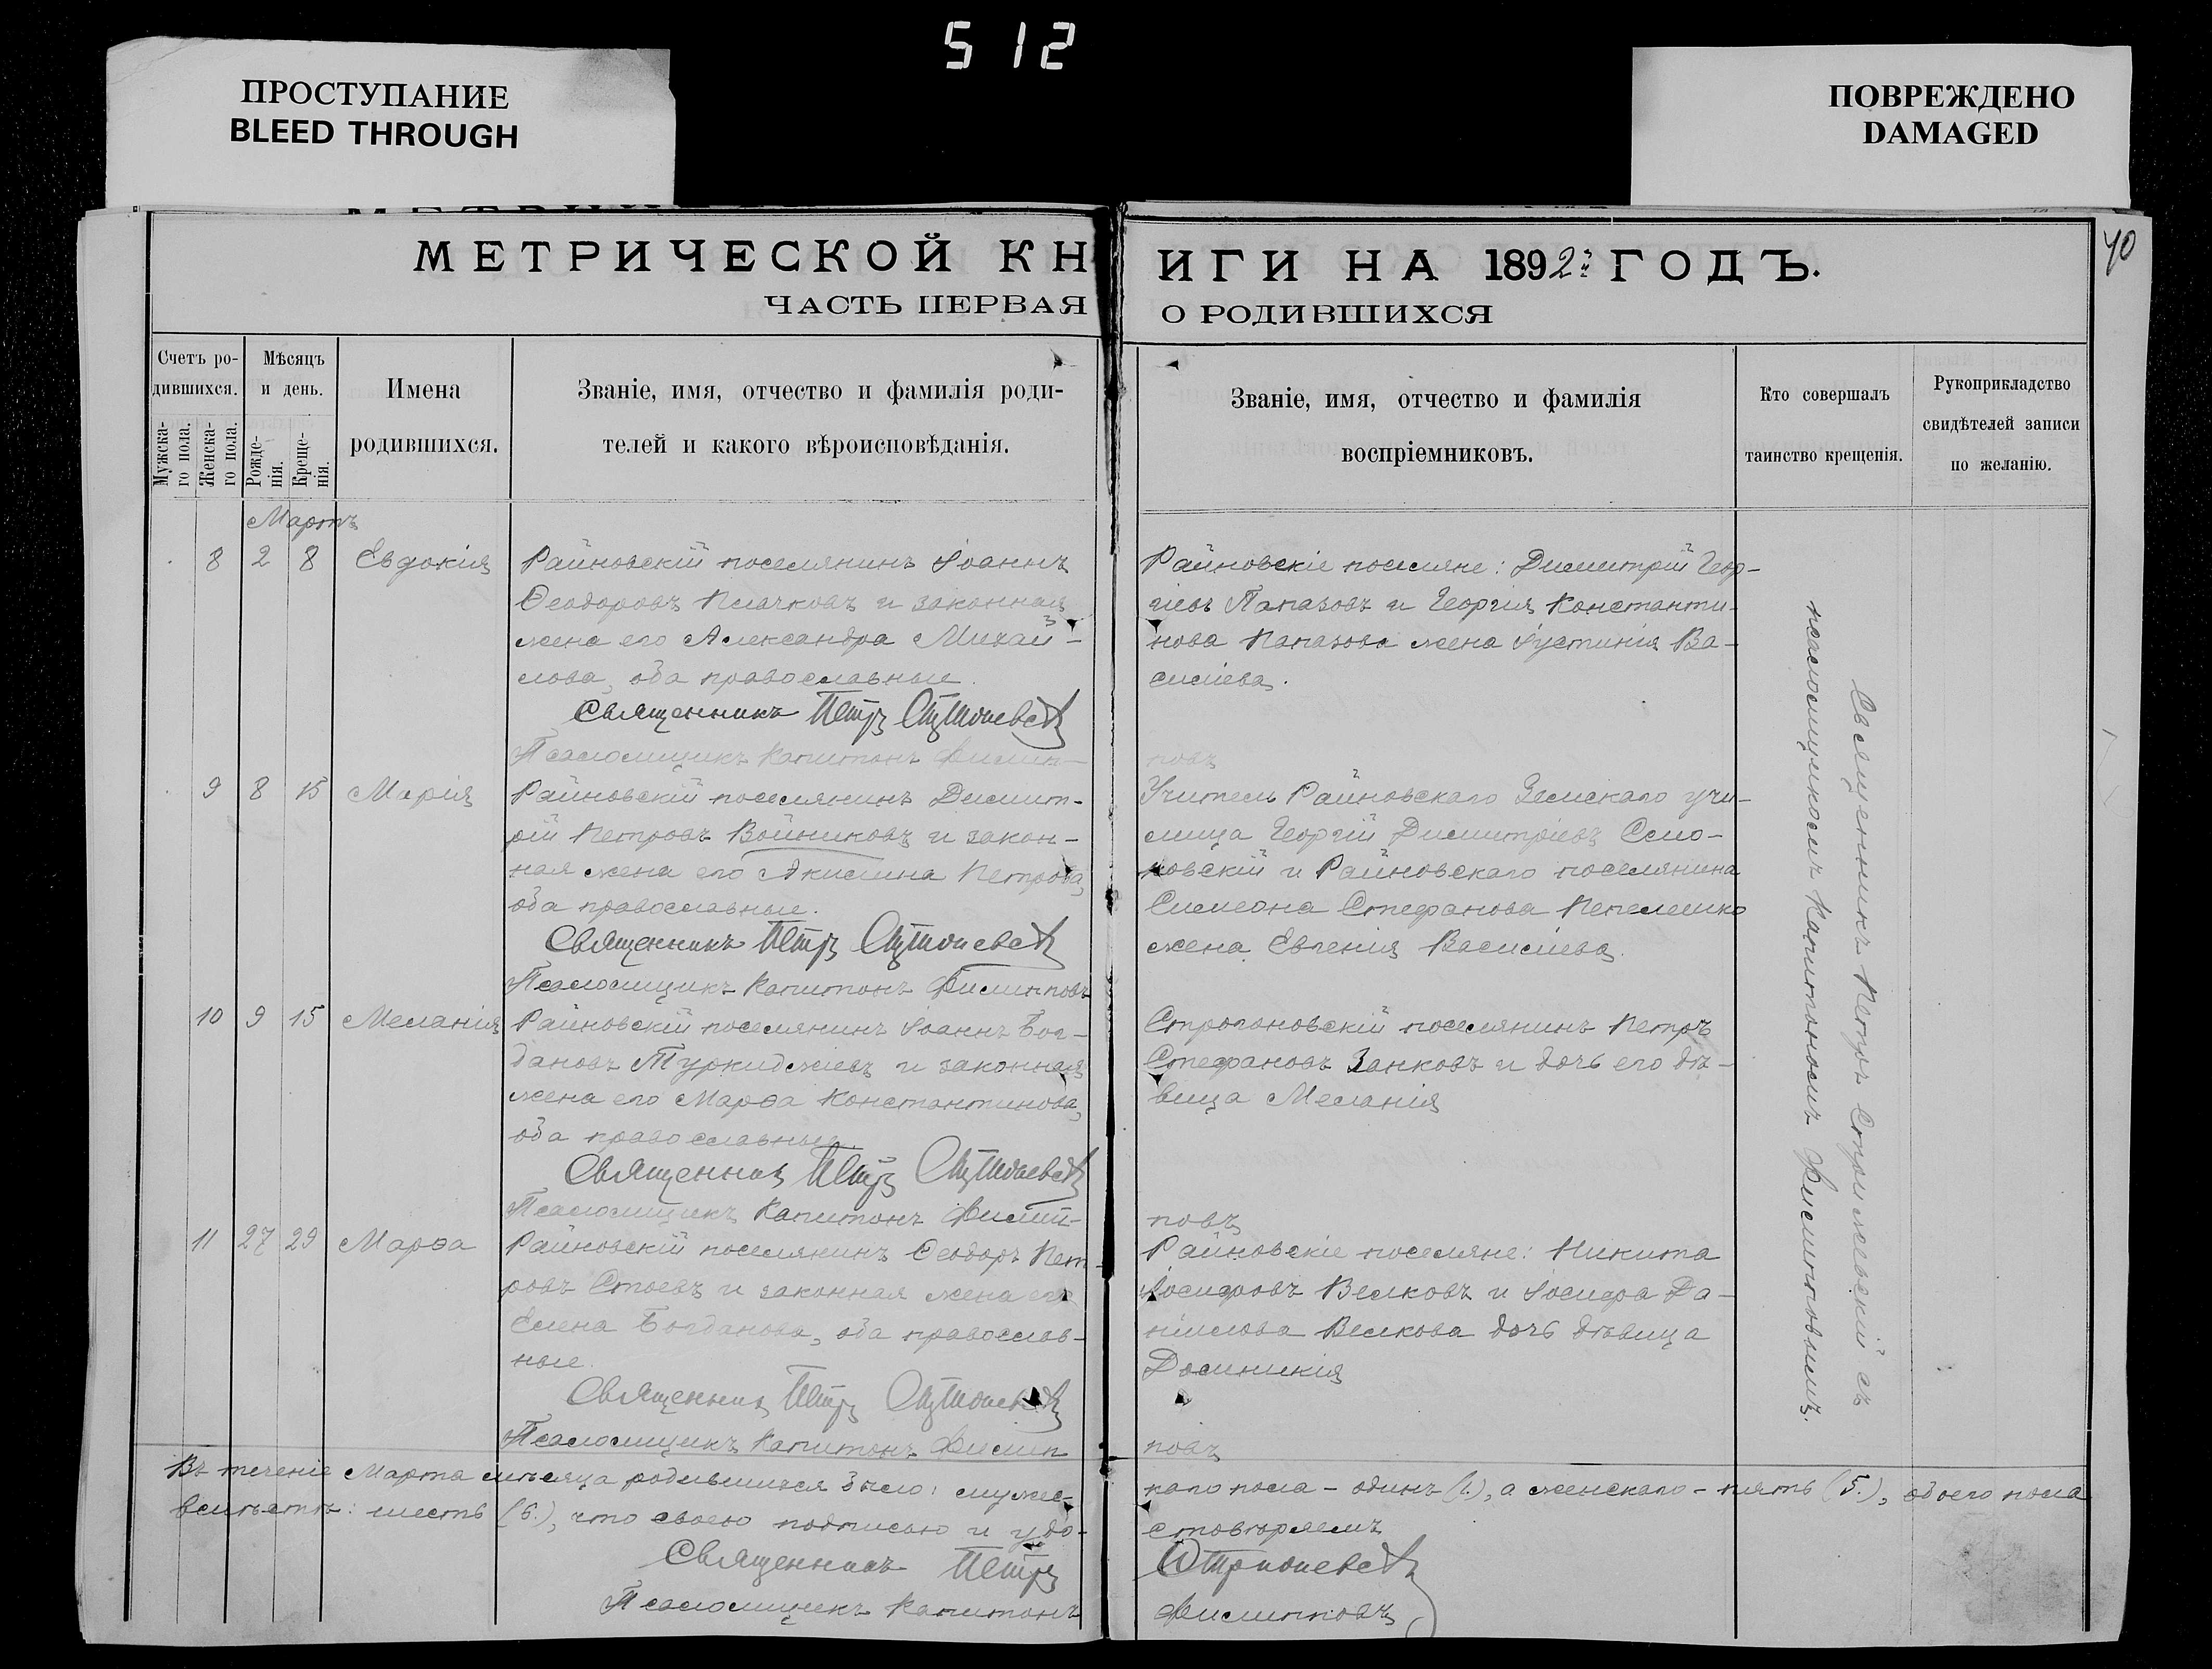 512
ПРОСТУПАНИЕ
BLEED THROUGH
ПОВРЕЖДЕНО
DAMAGED
40
МЕТРИЧЕСКОЙ КНИГИ НА 1892й ГОДЪ.
ЧАСТЬ ПЕРВАЯ О РОДИВШИХСЯ
Счетъ ро-
дившихся.
Мужска-
го пола.
Женска-
го пола.
Мѣсяцъ
и день.
Рожде-
нія.
Креще-
нія.
Имена
родившихся.
Званіе, имя, отчество и фамилія роди-
телей и какого вѣроисповѣданія.
Званіе, имя, отчество и фамилія
воспріемниковъ.
Кто совершалъ
таинство крещенія.
Рукоприкладство
свидѣтелей записи
по желанію.
Мартъ
8 2 8 Евдокія
Райновскій поселянинъ Іоаннъ
Ѳеодоровъ и законная
жена его Александра Михай-
лова, оба православные.
Священникъ Петръ
Псаломщикъ Капитонъ Филип-
повъ
Райновскіе поселяне: Димитрій Геор-
гіевъ Папазовъ и Георгія Константи-
нова Папазова жена Іустинія Ва-
силіева.
9 8 15 Марія
Райновскій поселянинъ Димит-
рій Петровъ Войниковъ и закон-
ная жена его Акилина Петрова,
оба православные.
Священникъ Петръ
Псаломщикъ Капитонъ Филипповъ
Учитель Райновскаго Земскаго учи-
лища Георгій Димитріевъ
и Райновскаго поселянина
Симеона Стефанова Пепелешко
жена Евгенія Василіева.
10 9 15 Меланія
Райновскій поселянинъ Іоаннъ Бог-
дановъ Туркиджіевъ и законная
жена его Марѳа Константинова,
оба православные.
Священникъ Петръ
Псаломщикъ Капитонъ Филип-
повъ
Строгановскій поселянинъ Петръ
Стефановъ Занковъ и дочь его дѣ-
вица Меланія
11 27 29 Марѳа
Райновскій поселянинъ Ѳеодоръ Пет-
ровъ Стоевъ и законная жена его
Елена Богданова, оба православ-
ные.
Священникъ Петръ
Псаломщикъ Капитонъ Филип
повъ
Райновскіе поселяне: Никита
Іосифовъ Велковъ и Іосифа Да-
ніилова Велкова дочь дѣвица
Домникія
Священникъ Петръ съ
псаломщикомъ Капитономъ Филипповымъ.
Въ теченіе Марта мѣсяца родившихся было: мужес-каго пола – одинъ (1.), а женскаго – пять (5.), обоего пола
вмѣстѣ: шесть (6.), что своею подписью и удо-стовѣряемъ
Священникъ Петръ
Псаломщикъ Капитонъ Филипповъ